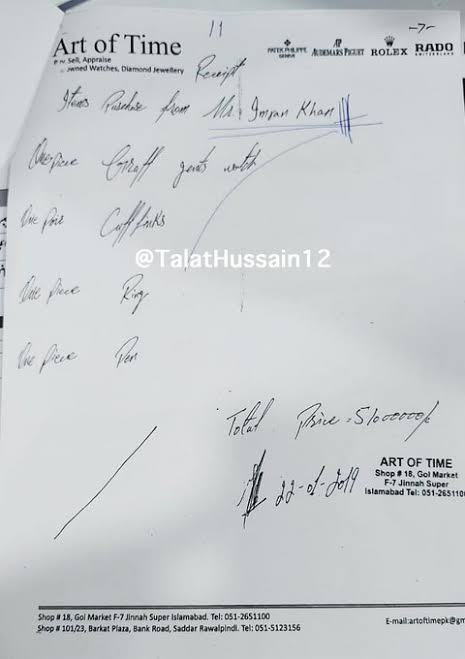 11
-7-
Art of Time
Sell, Appraise
owned Watches, Diamond Jewellery
PATEK PHILIPPE
GENEVE
AP
AUDEMARS PIGUET
ROLEX
RADO
SWITZERLAND
Receipt
Items Purchase from Mr. Imran Khan
One piece Graff gents watch
One pair Cuff links
@TalatHussain12
One piece Ring
One piece Pen
Total Price = 5100000/
22-01-2019
ART OF TIME
Shop # 18, Gol Market
F-7 Jinnah Super
Islamabad Tel: 051-265110
Shop # 18, Gol Market F-7 Jinnah Super Islamabad. Tel: 051-2651100
Shop # 101/23, Barkat Plaza, Bank Road, Saddar Rawalpindi. Tel: 051-5123156
E-mail:artoftimepk@gm